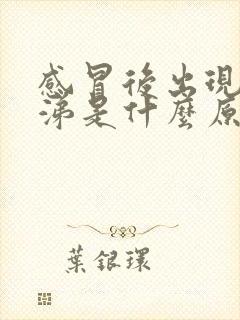 感冒後出現
涕是什麼原
葉銀環